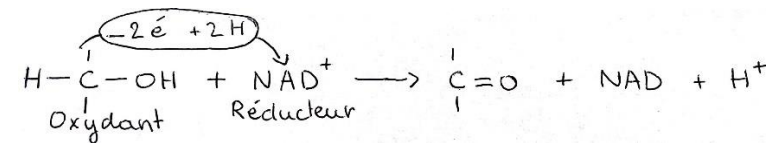 -2é +2H
H-C-OH + NAD⁺ → C=O + NAD + H⁺
Oxydant Réducteur